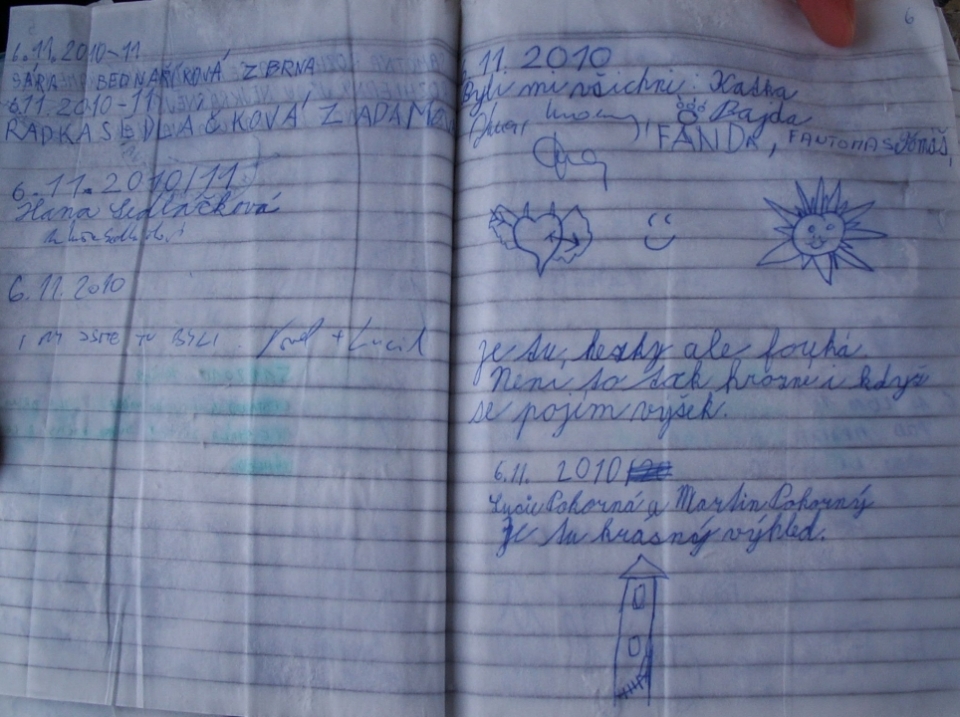 6.11.2010-11
SÁRA BEDNAŘÍKOVÁ Z BRNA
6.11.2010-11
RADKA SEDLÁČKOVÁ Z ADAMOV
6.11.2010/11
Hana Sedláčková
6.11.2010
I MY JSME TU BYLI. + Lucil
6
11.2010
Byli mi všichni: Katka
Bajda
FANDA, FANTOMAS, Tomáš,
je tu hezky ale fouká.
Není to tak hrozné i když
se pojím výšek.
6.11. 2010
Lucie Pokorná a Martin Pokorný
je tu krásný výhled.